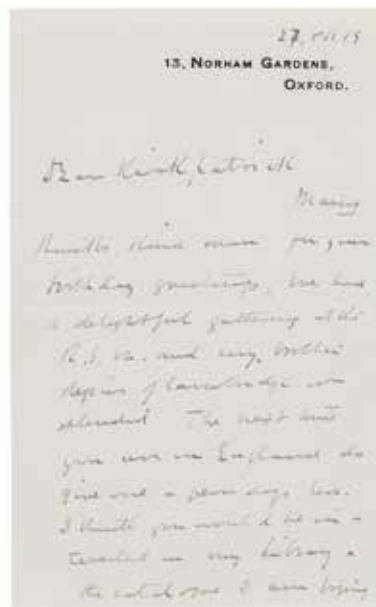 27. VII 19
13, NORHAM GARDENS,
OXFORD.
Dear Kirkpatrick
Many
thanks, kind man for your
birthday greetings. We had
a delightful gathering at the
R. S. M. and my brother
of Cambridge
splendid The next time
you are in England do
give me a few days here.
I think you would be in-
terested in my library &
the catalogue I am trying